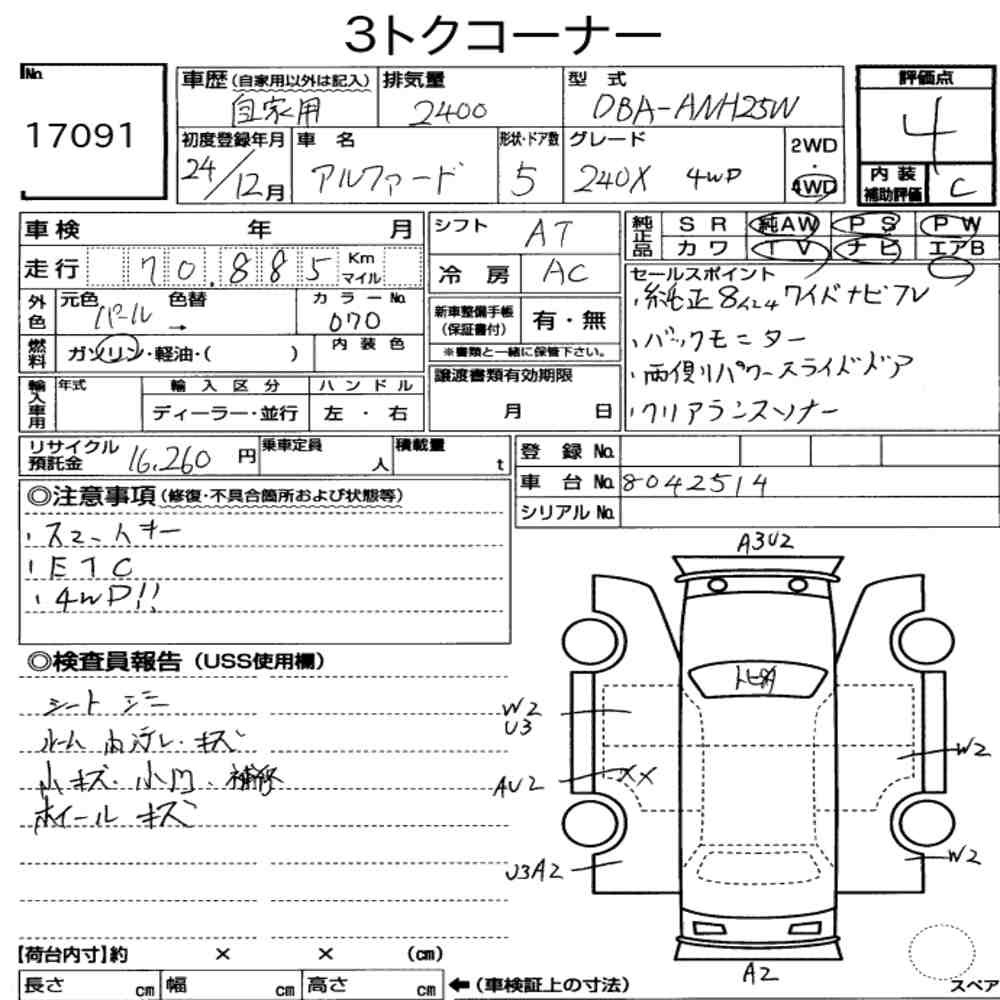 3トクコーナー
No.
17091
車歴 (自家用以外は記入)
自家用
排気量
2400
型 式
DBA-ANH25W
評価点
4
内装補助評価
C
初度登録年月
24/12月
車 名
アルファード
形状・ドア数
5
グレード
240X 4WD
2WD
・
4WD
車検 年 月
走行 70,885 Km マイル
シフト AT
冷房 AC
純正品
SR 純AW PS PW
カワ TV ナビ エアB
外色
元色 パール →
色替
カラーNo.
070
燃料
ガソリン・軽油・( )
内装色
新車整備手帳
(保証書付)
有・無
※書類と一緒に保管下さい。
セールスポイント
・純正8インチワイドナビフル
・バックモニター
・両側パワースライドドア
・クリアランスソナー
輸入車用
年式
輸入区分
ディーラー・並行
ハンドル
左・右
譲渡書類有効期限
月 日
リサイクル預託金
16,260 円
乗車定員
人
積載量
t
登録 No.
車台 No. 8042514
シリアル No.
◎注意事項 (修復・不具合箇所および状態等)
・スマートキー
・ETC
・4WD!!
◎検査員報告 (USS使用欄)
シート ジミ
ルーム内汚レ・キズ
小キズ・小凹・補修
ホイール キズ
A3U2
W2
U3
AU2
XX
U3A2
W2
W2
A2
【荷台内寸】約 × × (cm)
長さ cm 幅 cm 高さ cm
←(車検証上の寸法)
スペア